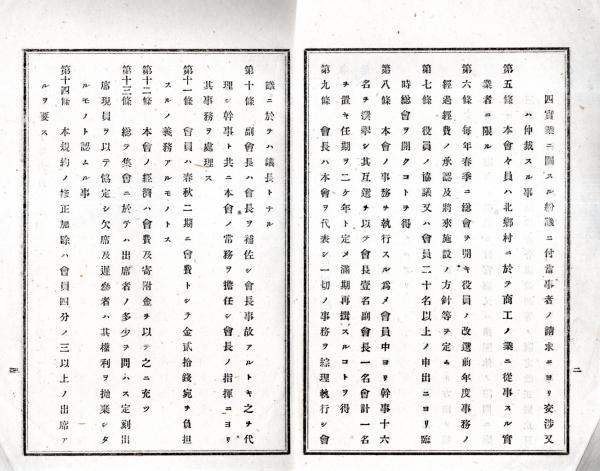 四實業ニ關スル紛議ニ付當事者ノ請求ニヨリ交渉又
ハ仲裁スル事
第五條 本會々員ハ北鄕村ニ於テ商工ノ業ニ從事スル實
業者ニ限ル
第六條 每年春季ニ總會ヲ開キ役員ノ改選前年度事務ノ
經過經費ノ承認及將來施設ノ方針等ヲ定ム
第七條 役員ノ協議又ハ會員二十名以上ノ申出ニヨリ臨
時總會ヲ開クコトヲ得
第八條 本會ノ事務ヲ執行スル爲メ會員中ヨリ幹事十六
名ヲ撰擧シ其互選ヲ以テ會長壹名副會長一名會計一名
ヲ置キ任期ヲ二ケ年ト定メ滿期再撰スルコトヲ得
第九條 會長ハ本會ヲ代表シ一切ノ事務ヲ綜理執行シ會
二
議ニ於テハ議長トナル
第十條 副會長ハ會長ヲ補佐シ會長事故アルトキ之ヲ代
理シ幹事ト共ニ本會ノ常務ヲ擔任シ會長ノ指揮ニヨリ
其事務ヲ處理ス
第十一條 會員ハ春秋二期ニ會費トシテ金貳拾錢宛ヲ負担
スルノ義務アルモノトス
第十二條 本會ノ經濟ハ會費及寄附金ヲ以テ之ニ充ツ
第十三條 總テ集會ニ於テハ出席者ノ多少ヲ問ハス定刻出
席現員ヲ以テ協定シ欠席及遲參者ハ其權利ヲ拋棄シタ
ルモノト認ムル事
第十四條 本規約ノ修正加除ハ會員四分ノ三以上ノ出席ア
ルヲ要ス